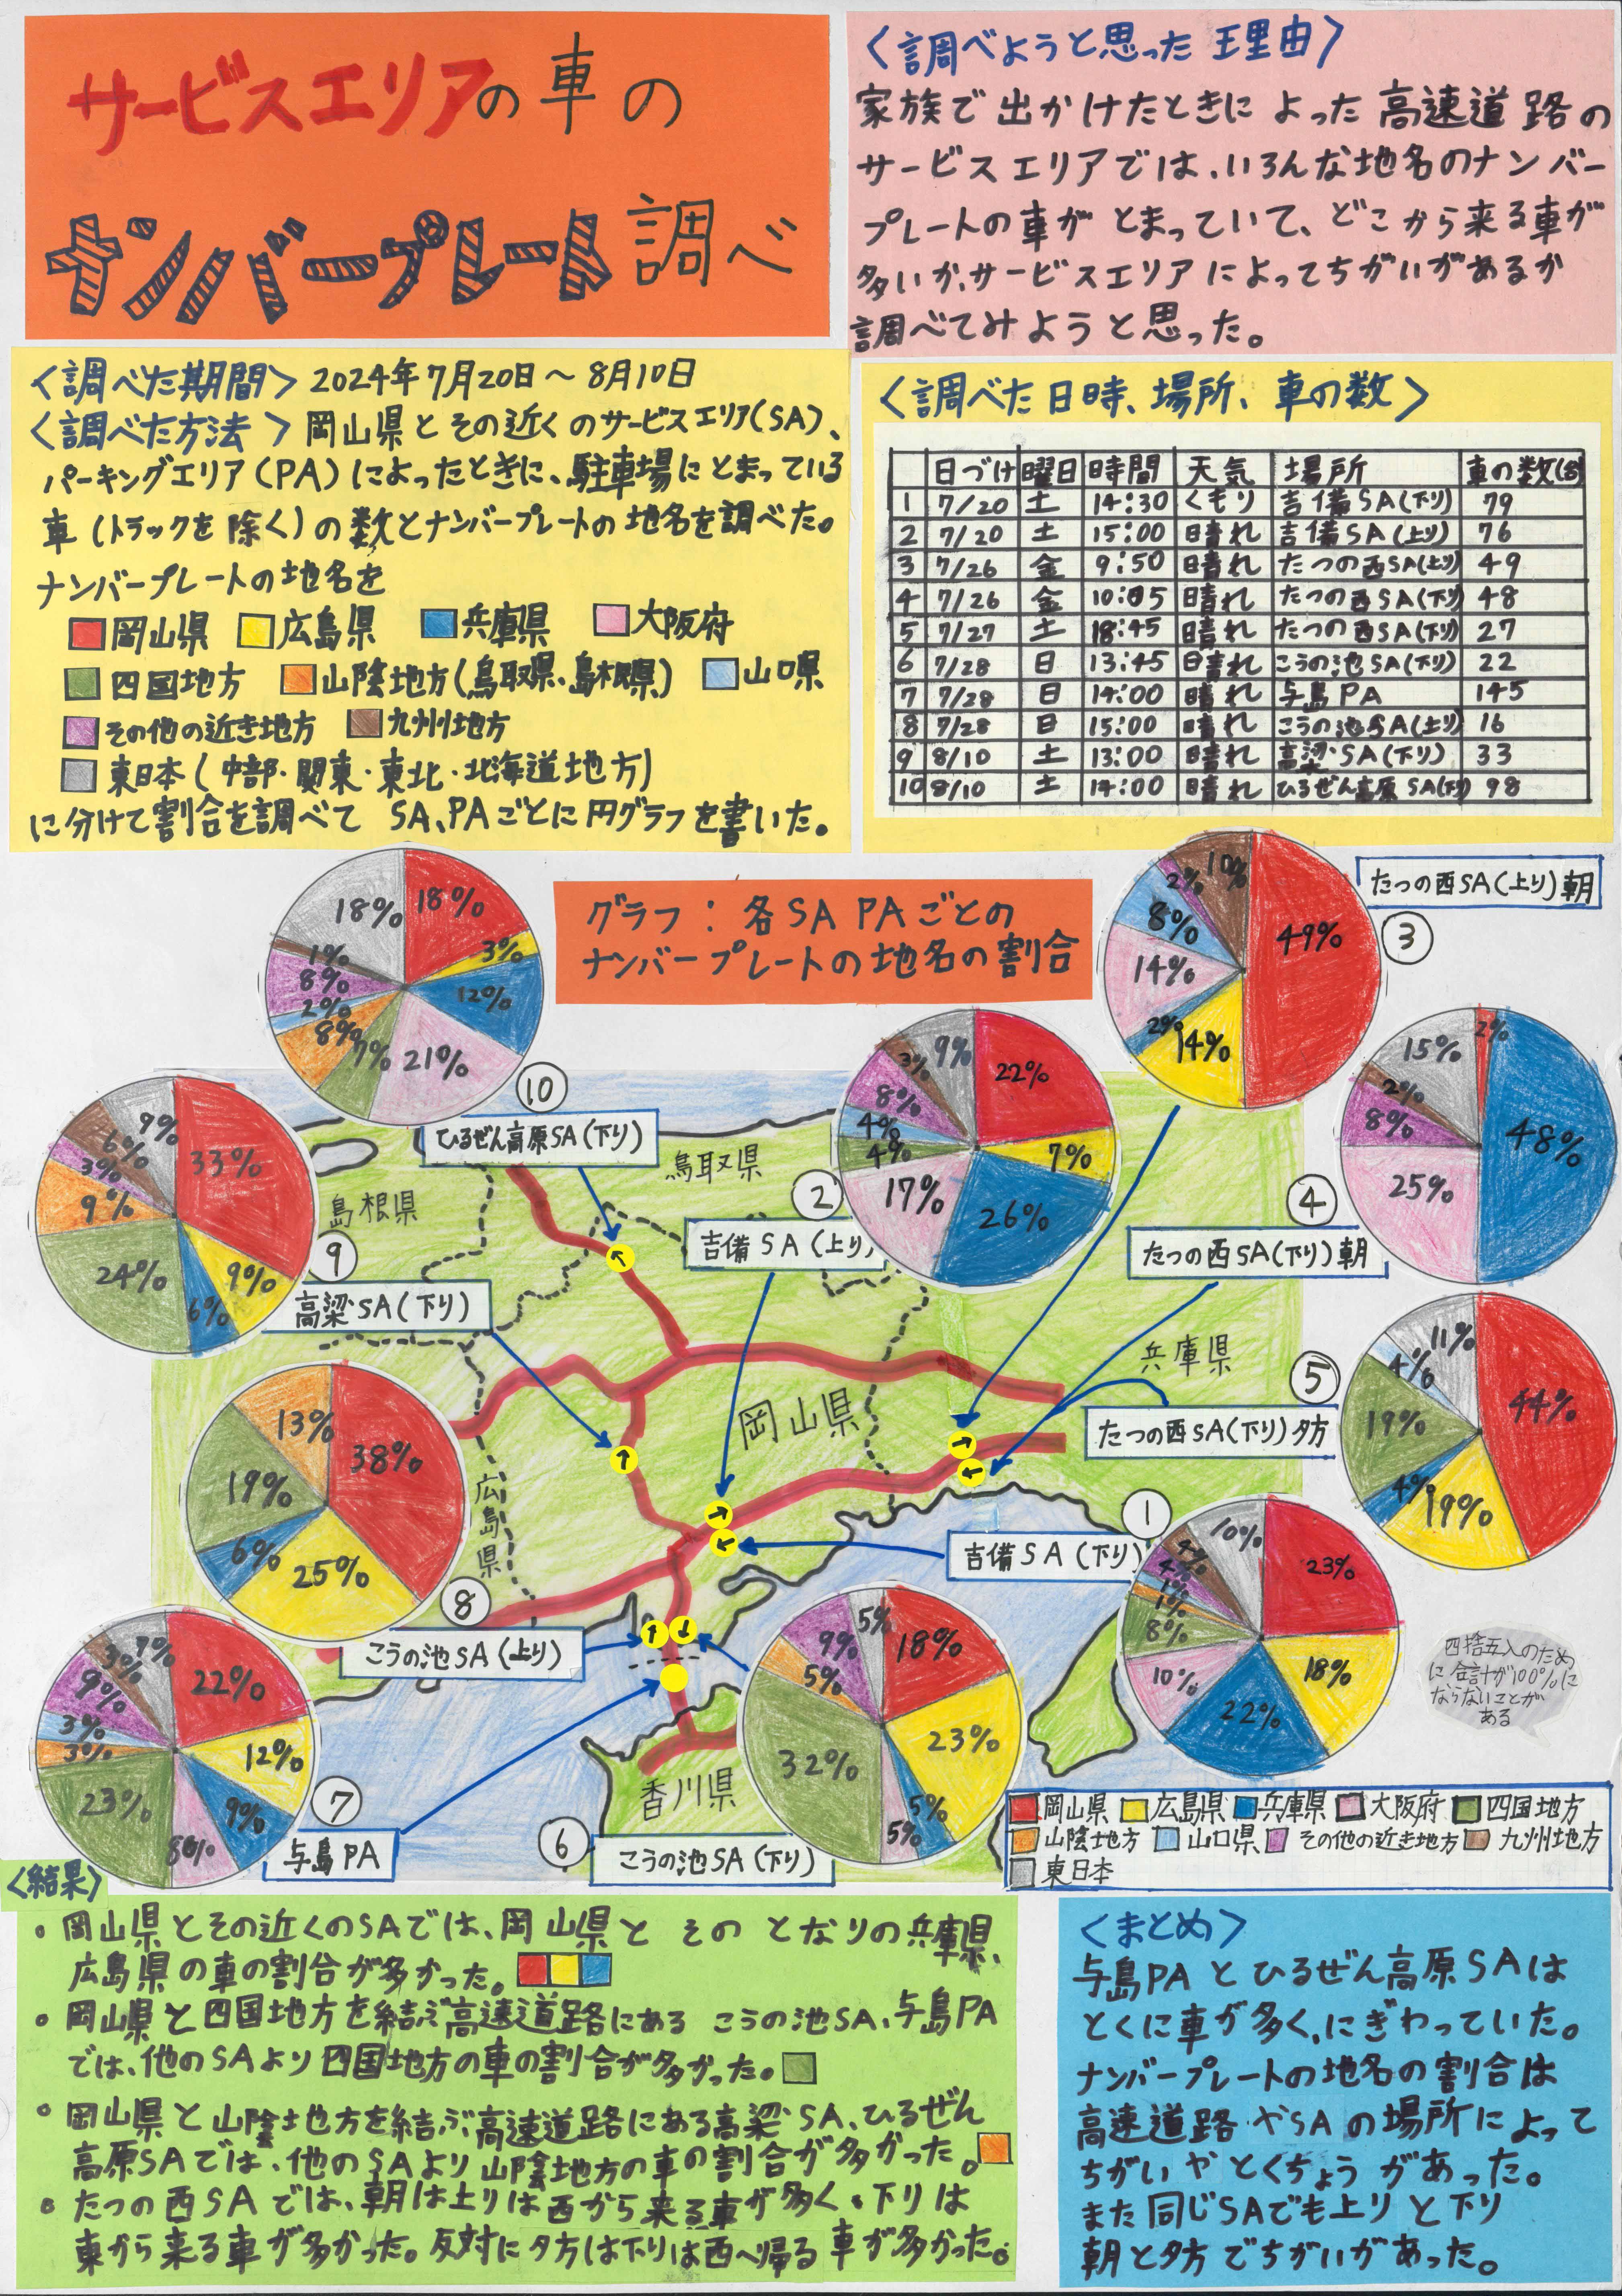 サービスエリアの車の
ナンバープレート調べ
〈調べようと思った理由〉
家族で出かけたときによった高速道路の
サービスエリアでは、いろんな地名のナンバー
プレートの車がとまっていて、どこから来る車が
多いか、サービスエリアによってちがいがあるか
調べてみようと思った。
〈調べた期間〉2024年7月20日〜8月10日
〈調べた方法〉岡山県とその近くのサービスエリア(SA)、
パーキングエリア(PA)によったときに、駐車場にとまっている
車(トラックを除く)の数とナンバープレートの地名を調べた。
ナンバープレートの地名を
岡山県 広島県 兵庫県 大阪府
四国地方 山陰地方(鳥取県、島根県) 山口県
その他の近き地方 九州地方
東日本(中部・関東・東北・北海道地方)
に分けて割合を調べて SA、PAごとに円グラフを書いた。
〈調べた日時、場所、車の数〉
日づけ 曜日 時間 天気 場所 車の数(台)
1 7/20 土 14:30 くもり 吉備SA(下り) 79
2 7/20 土 15:00 晴れ 吉備SA(上り) 76
3 7/26 金 9:50 晴れ たつの西SA(上り) 49
4 7/26 金 10:05 晴れ たつの西SA(下り) 48
5 7/27 土 18:45 晴れ たつの西SA(下り) 27
6 7/28 日 13:45 晴れ こうの池SA(下り) 22
7 7/28 日 14:00 晴れ 与島PA 145
8 7/28 日 15:00 晴れ こうの池SA(上り) 16
9 8/10 土 13:00 晴れ 高梁SA(下り) 33
10 8/10 土 14:00 晴れ ひるぜん高原SA(下り) 98
グラフ:各SA PAごとの
ナンバープレートの地名の割合
18% 3% 12% 21% 7% 8% 2% 8% 1% 18%
⑩
ひるぜん高原SA(下り)
49% 14% 2% 14% 8% 2% 10%
たつの西SA(上り)朝
③
22% 7% 26% 17% 4% 4% 8% 3% 9%
②
吉備SA(上り)
2% 48% 25% 8% 2% 15%
④
たつの西SA(下り)朝
33% 9% 6% 24% 9% 3% 6% 9%
⑨
高梁SA(下り)
44% 19% 4% 19% 4% 11%
⑤
たつの西SA(下り)夕方
38% 25% 6% 19% 13%
⑧
こうの池SA(上り)
23% 18% 22% 10% 8% 1% 1% 4% 4% 10%
①
吉備SA(下り)
22% 12% 9% 8% 23% 3% 3% 9% 3% 7%
⑦
与島PA
18% 23% 5% 5% 32% 5% 9% 5%
⑥
こうの池SA(下り)
島根県
鳥取県
岡山県
兵庫県
広島県
香川県
四捨五入のため
に合計が100%に
ならないことが
ある
岡山県 広島県 兵庫県 大阪府 四国地方
山陰地方 山口県 その他の近き地方 九州地方
東日本
〈結果〉
・岡山県とその近くのSAでは、岡山県とそのとなりの兵庫県、
広島県の車の割合が多かった。
・岡山県と四国地方を結ぶ高速道路にあるこうの池SA、与島PA
では、他のSAより四国地方の車の割合が多かった。
・岡山県と山陰地方を結ぶ高速道路にある高梁SA、ひるぜん
高原SAでは、他のSAより山陰地方の車の割合が多かった。
・たつの西SAでは、朝は上りは西から来る車が多く、下りは
東から来る車が多かった。反対に夕方は下りは西へ帰る車が多かった。
〈まとめ〉
与島PAとひるぜん高原SAは
とくに車が多く、にぎわっていた。
ナンバープレートの地名の割合は
高速道路やSAの場所によって
ちがいやとくちょうがあった。
また同じSAでも上りと下り
朝と夕方でちがいがあった。